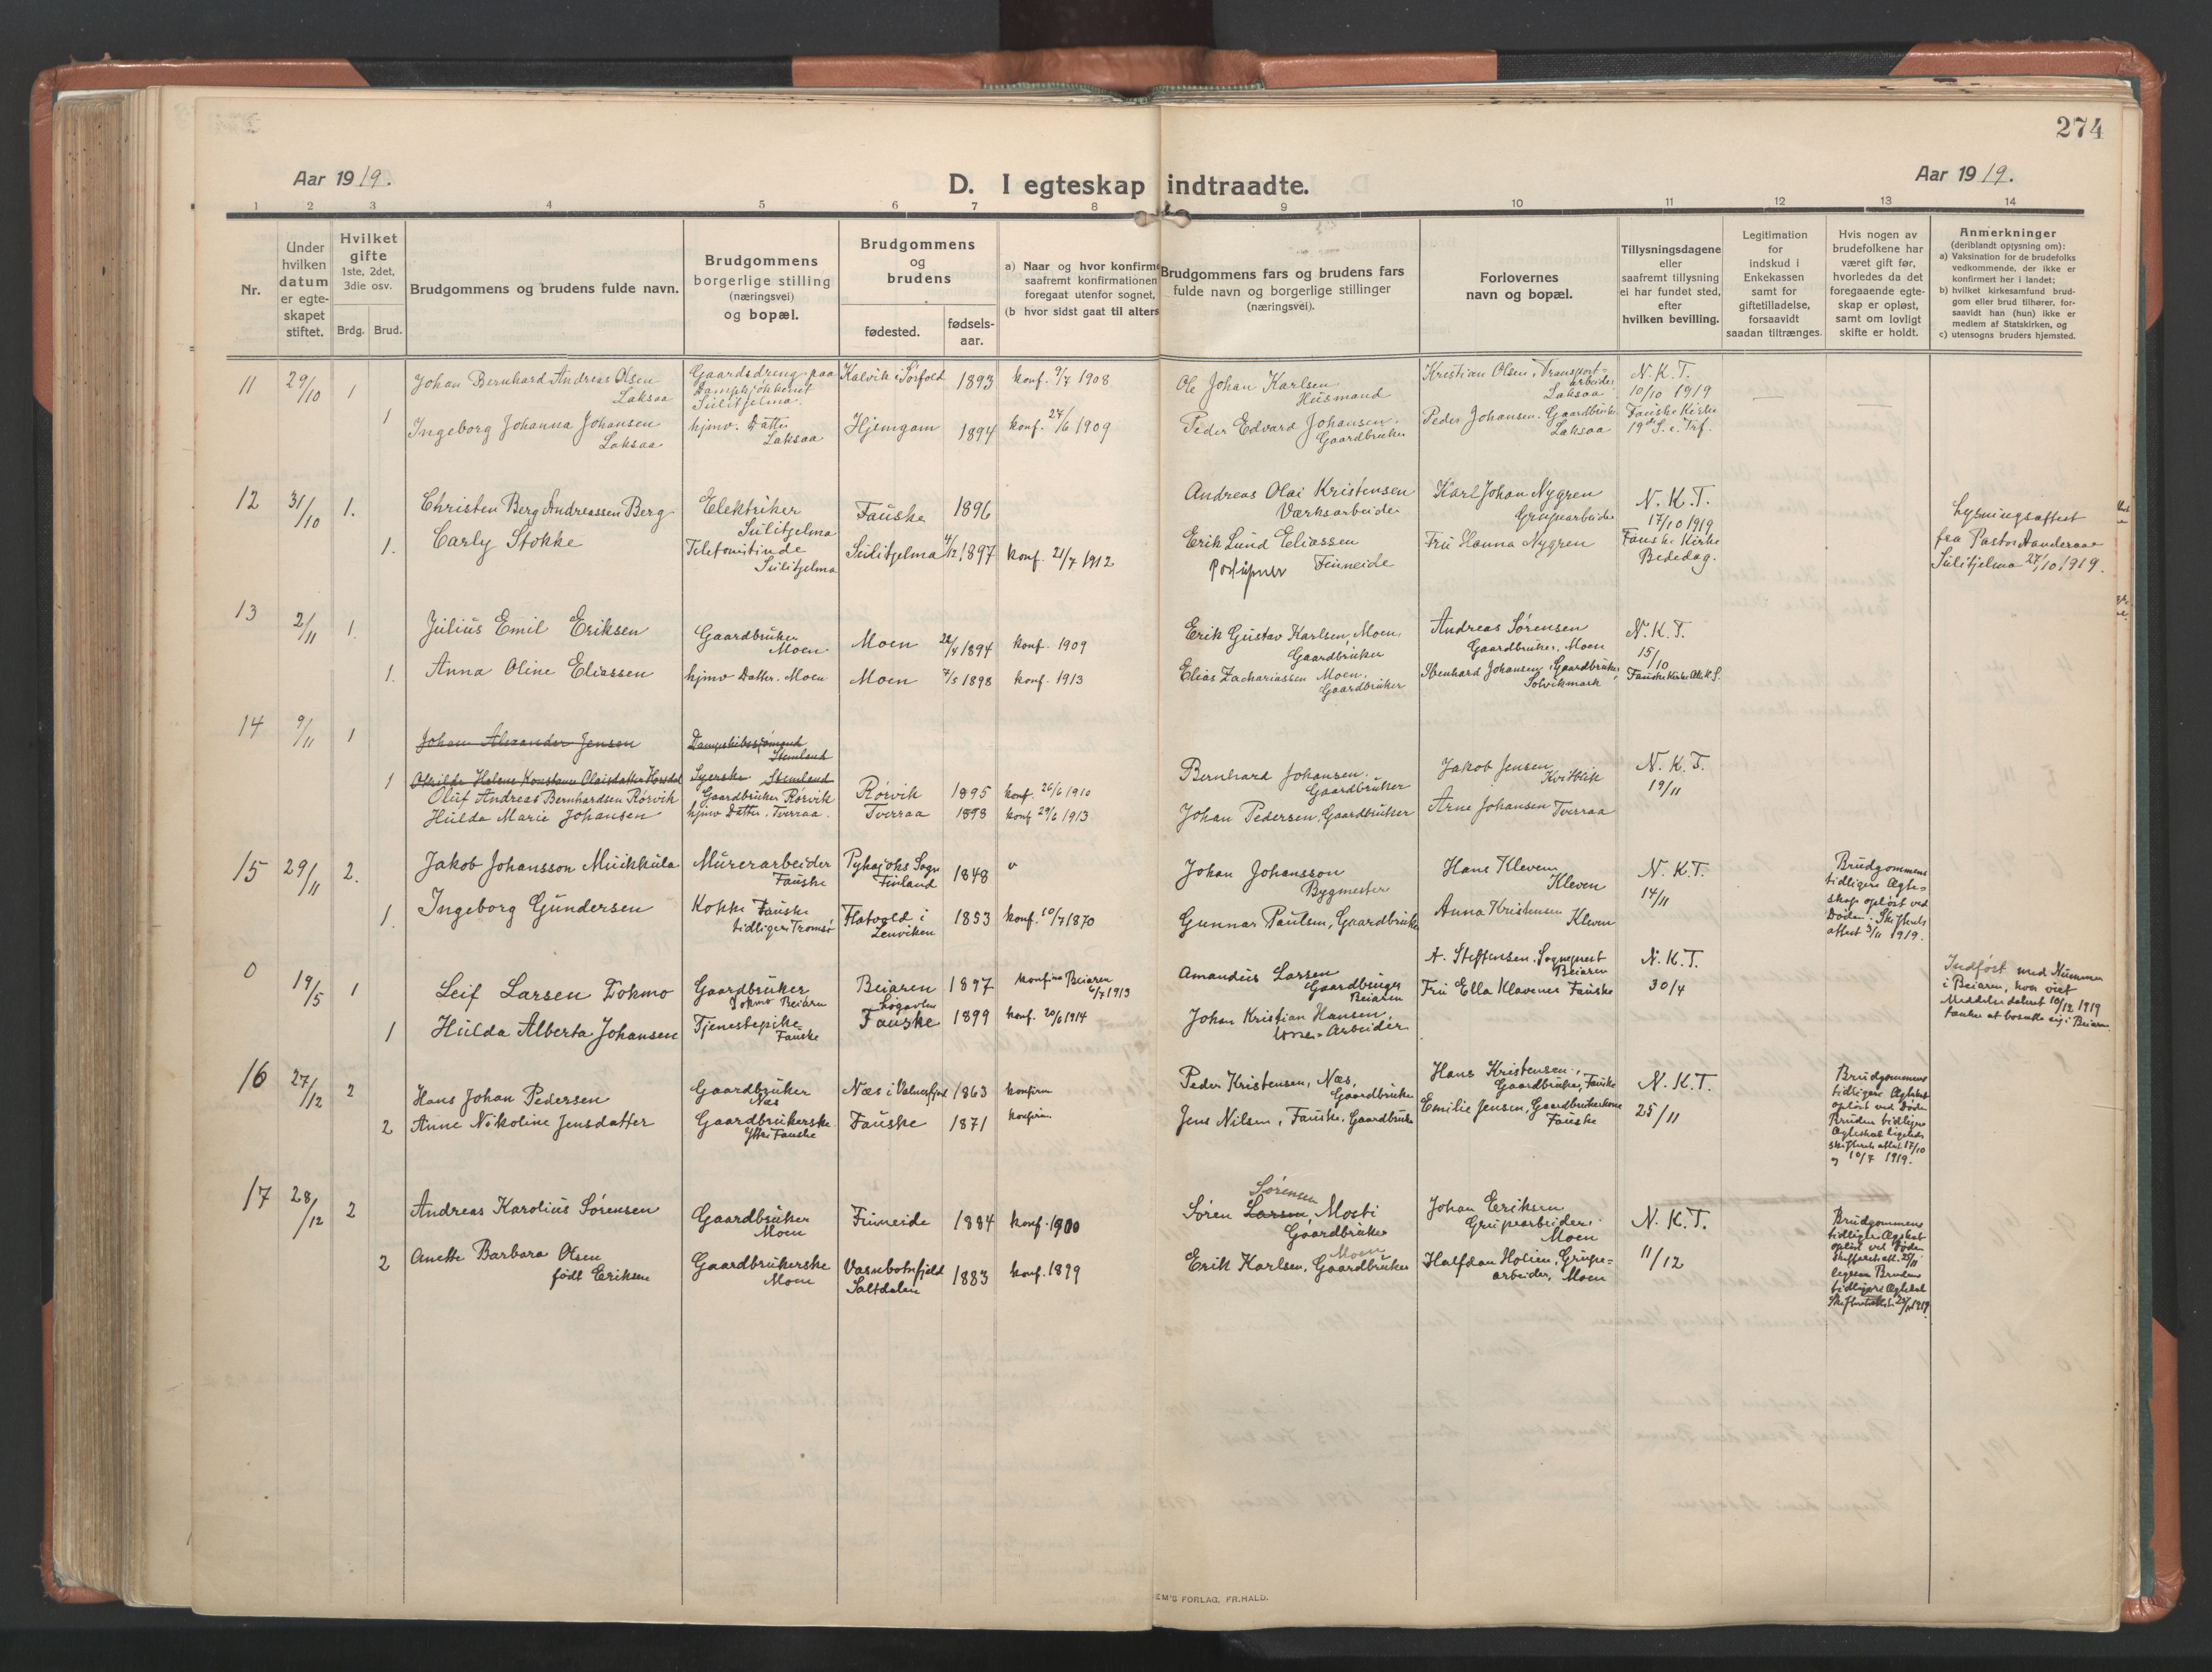 274
Aar 1919.
D. I egteskap indtraadte.
Aar 1919.
1 2 3 4 5 6 7 8 9 10 11 12 13 14
Nr.
Under hvilken datum er egte-skapet stiftet.
Hvilket gifte 1ste, 2det, 3die osv.
Brdg. Brud.
Brudgommens og brudens fulde navn.
Brudgommens borgerlige stilling (næringsvei) og bopæl.
Brudgommens og brudens
fødested.
fødsels-aar.
a) Naar og hvor konfirme
saafremt konfirmationen
foregaat utenfor sognet,
(b hvor sidst gaat til alters
Brudgommens fars og brudens fars
fulde navn og borgerlige stillinger
(næringsvei).
Forlovernes
navn og bopæl.
Tillysningsdagene
eller
saafremt tillysning
ei har fundet sted,
efter
hvilken bevilling.
Legitimation
for
indskud i
Enkekassen
samt for
giftetilladelse,
forsaavidt
saadan tiltrænges.
Hvis nogen av
brudefolkene har
været gift før,
hvorledes da det
foregaaende egte-
skap er opløst,
samt om lovligt
skifte er holdt.
Anmerkninger
(deriblandt oplysning om):
a) Vaksination for de brudefolks
vedkommende, der ikke er
konfirmert her i landet;
b) hvilket kirkesamfund brud-
gom eller brud tilhører, for-
saavidt han (hun) ikke er
medlem af Statskirken, og
c) utensogns bruders hjemsted.
11 29/10 1 Johan Bernhard Andreas Olsen Laksaa
Gaardsdreng paa Dampkjøkkenet Sulitjelma.
Kalvik i Sørfold 1893 konf. 9/7 1908
Ole Johan Karlsen Husmand
Kristian Olsen, Transport-arbeider Laksaa
N. K. T. 10/10 1919
1 Ingeborg Johanna Johansen Laksaa
hjmv. Datter Laksaa
Hjemgam 1894 konf. 27/6 1909
Peder Edvard Johansen. Gaardbruker
Peder Johansen. Gaardbruker Laksaa
Fauske Kirke 19de S. e. Tref.
12 31/10 1. Christen Berg Andreassen Berg
Elektriker Sulitjelma
Fauske 1896
Andreas Olai Kristensen Værksarbeider
Karl Johan Nygren Grupearbeider
N. K. T. 17/10 1919
1. Carly Stokke
Telefonistinde Sulitjelma
Sulitjelma 4/12 1897 konf. 21/7 1912
Erik Lund Eliassen Finneide
Fru Hanna Nygren
Fauske Kirke Bededag.
Lysningsattest
fra Pastor Aanderaa
Sulitjelma 27/10 1919.
13 2/11 1. Julius Emil Eriksen
Gaardbruker Moen
Moen 22/4 1894 konf. 1909
Erik Gustav Karlsen, Moen. Gaardbruker
Andreas Sørensen Gaardbruker, Moen
N. K. T. 15/10
1. Anna Oline Eliassen
hjmv Datter. Moen
Moen 7/5 1898 konf. 1913
Elias Zachariassen Moen. Gaardbruker
Bernhard Johansen, Gaardbruker, Solvikmark
Fauske Kirke
14 9/11 1 Johan Alexander Jensen
Dampskibssømand Stemland
1 Helene Konstanse Olaisdatter
Syerske Stemland
Oluf Andreas Bernhardsen Rørvik
Gaardbruker Rørvik
Rørvik 1895 konf. 26/6 1910
Bernhard Johansen. Gaardbruker
Jakob Jensen Kvitblik
N. K. T. 19/11
Hulda Marie Johansen
hjmv Datter. Tverraa.
Tverraa 1898 konf 29/6 1913
Johan Pedersen, Gaardbruker
Arne Johansen Tverraa
15 29/11 2. Jakob Johansson Muikkula
Murerarbeider Fauske
Pyhajoks Sogn Finland 1848
Johan Johansson Bygmester
Hans Kleven Kleven
N. K. T. 14/11
Brudgommens
tidligere Ægte-
skap opløst ved
Døden. Skifterets
attest 3/11 1919.
1. Ingeborg Gundersen
Kokke Fauske tidligere Tromsø
Flatvold i Lenviken 1853 konf. 10/7 1870
Gunnar Paulsen, Gaardbruker
Anna Kristensen Kleven
0 19/5 1 Leif Larsen Tokmo
Gaardbruker Tokmo Beiarn
Beiaren 1897 konfirm Beiaren 6/7 1913
Amandus Larsen Gaardbruger Beiaren
A. Steffensen. Sogneprest Beiaren
N. K. T. 30/4
Indført med Nummer
i Beiaren, hvor viet
Meddelse dateret 10/12 1919
tænker at bosætte sig i Beiaren
1 Hulda Alberta Johansen
Tjenestepike Fauske
Løgavlen Fauske 1899 konf. 20/6 1914
Johan Kristian Hansen, Arbeider
Fru Ella Klavenes Fauske
16 27/12 2 Hans Johan Pedersen
Gaardbruker Næs
Næs i Valnesfjord 1863 konfirm
Peder Kristensen, Næs, Gaardbruker
Hans Kristensen, Gaardbruker, Fauske
N. K. T. 25/11
Brudgommens
tidligere Ægteskab
opløst ved Døden
Bruden tidligere
Ægteskab ligeledes
skifterets attest 17/10
og 10/7 1919.
2 Anne Nikoline Jensdatter
Gaardbrukerske Ytre Fauske
Fauske 1871 konfirm
Jens Nilsen, Fauske, Gaardbruker
Emilie Jensen, Gaardbrukerkone Fauske
17 28/12 2 Andreas Karolius Sørensen
Gaardbruker Moen
Finneide 1884 konf. 1900
Sørensen
Søren Larsen, Mosti Gaardbruker
Johan Eriksen Grupearbeider. Moen
N. K. T. 11/12
Brudgommens
tidligere Ægteskab
opløst ved Døden
Skifterets att. 25/11
ligesaa Brudens
tidligere Ægteskab
2 Anette Barbara Olsen født Eriksen
Gaardbrukerske Moen
Vasnbotnfjeld Saltdalen 1883 konf. 1899
Erik Karlsen, Gaardbruker Moen
Halfdan Moen, Grupe-arbeider, Moen
EM'S FORLAG, FR.HALD.